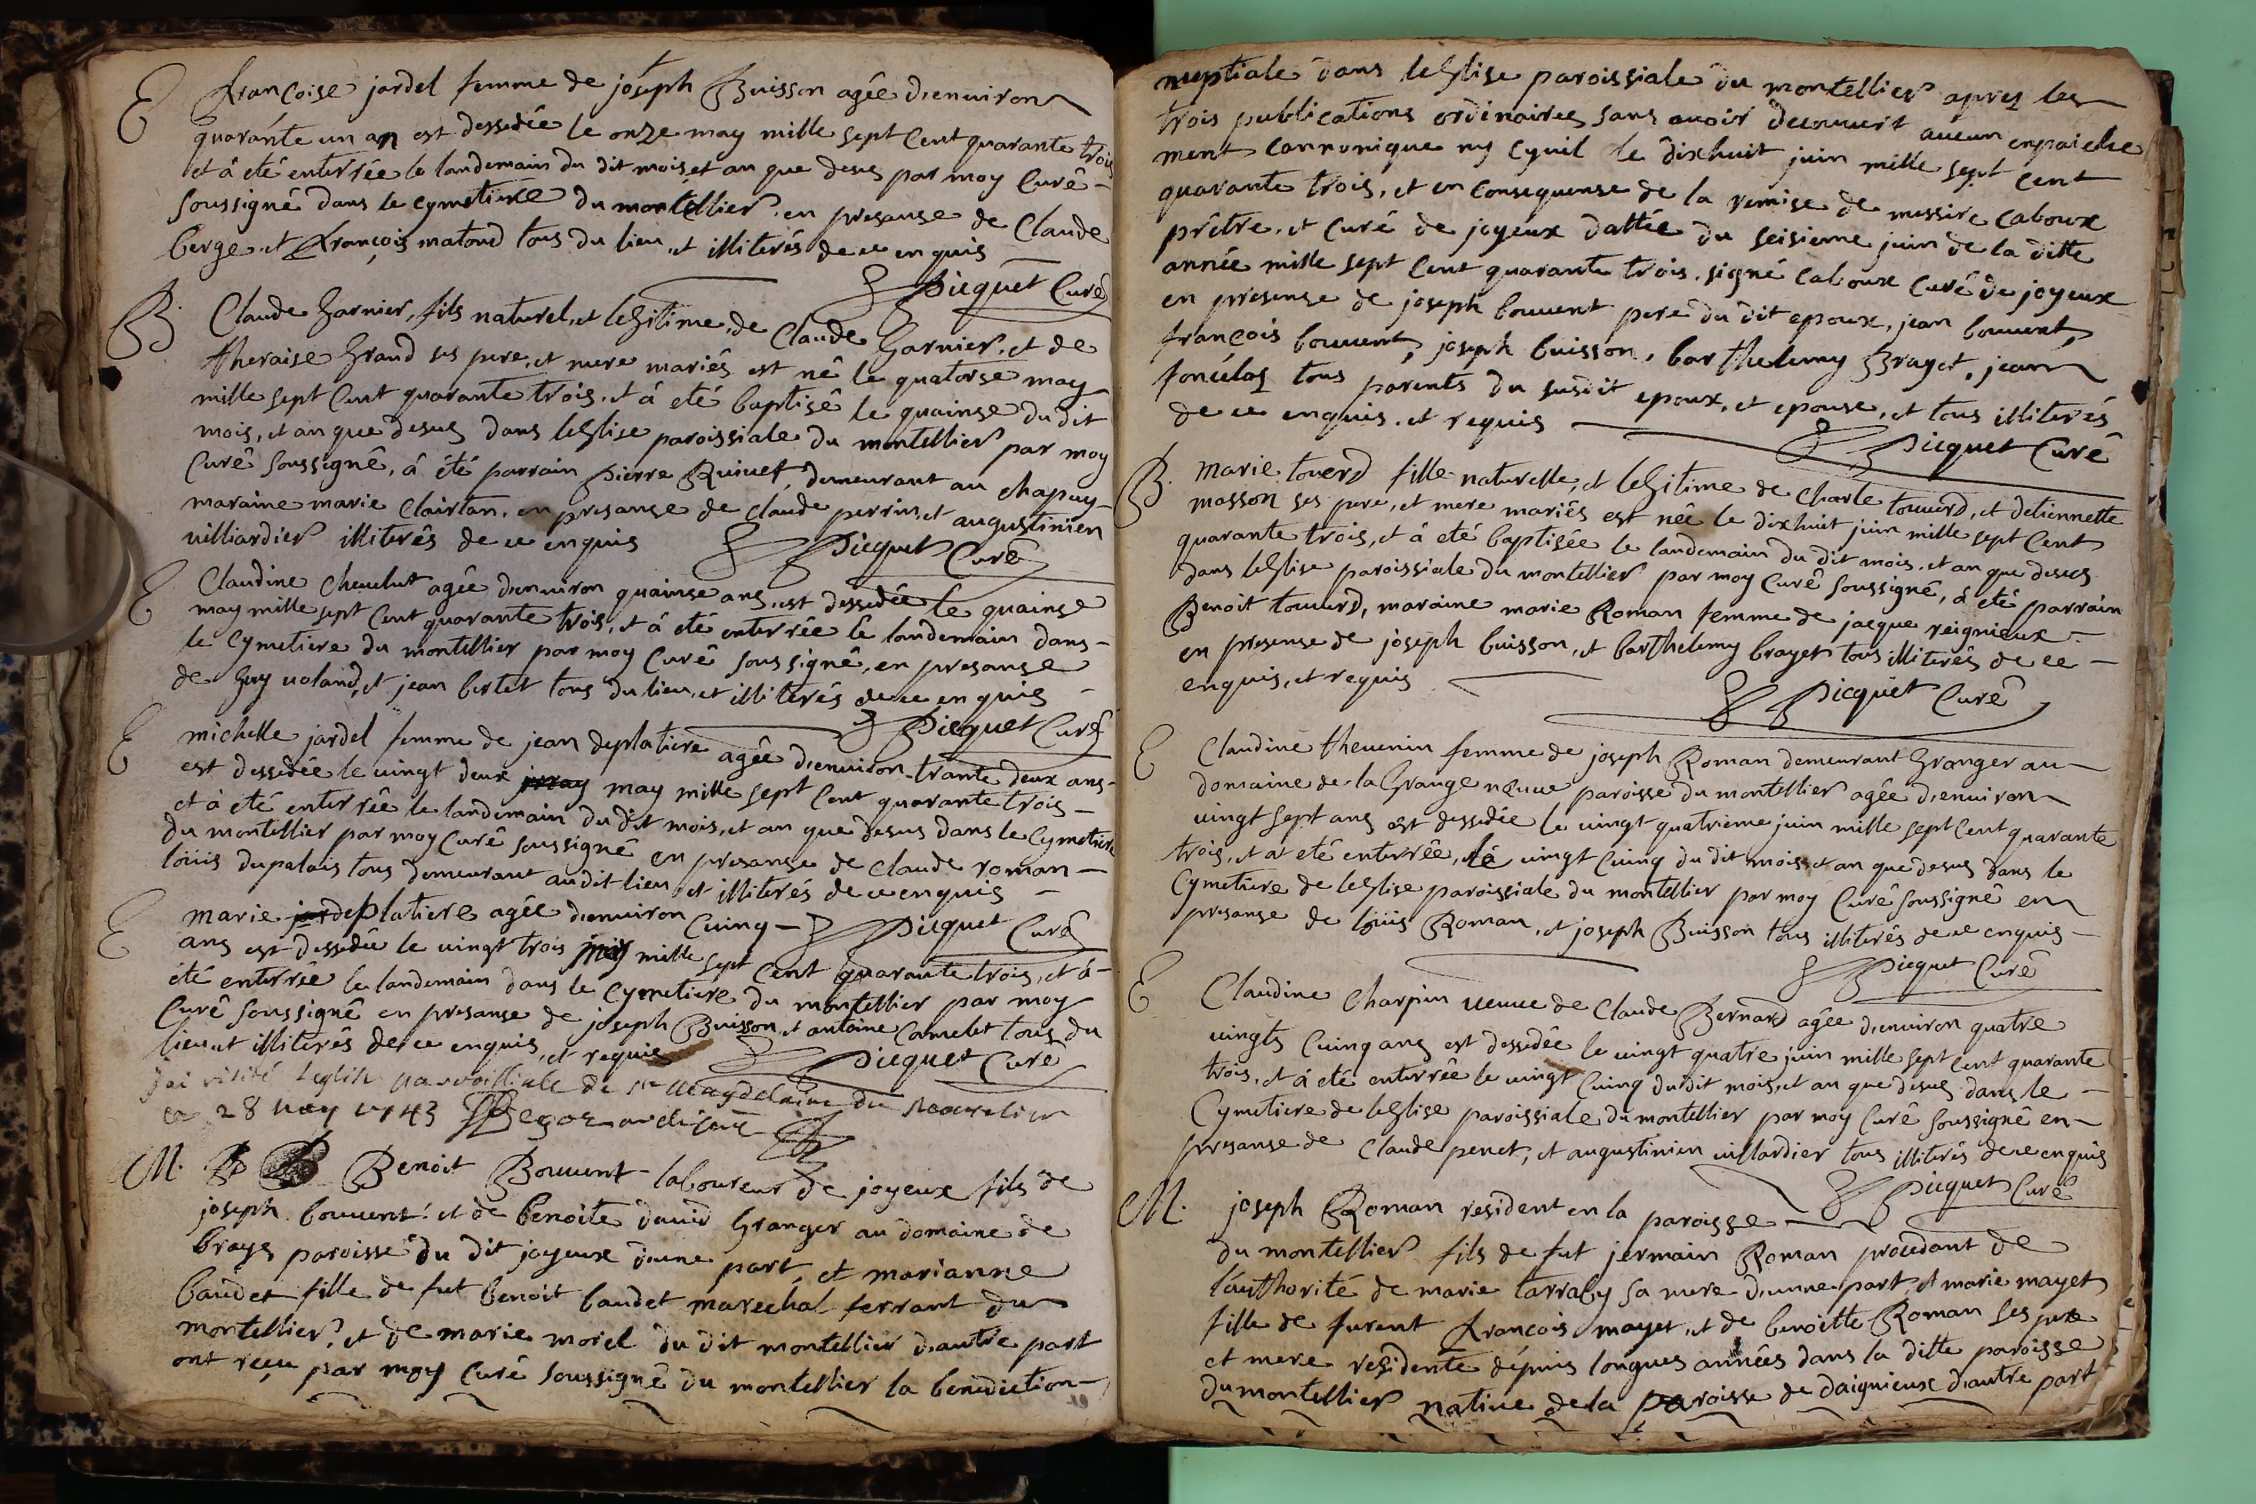 E françoise jardel femme de joseph Buisson agée d'enuiron
quarante un an est dessedée le onze may mille sept cent quarante trois
et à eté enterrée le landemain du dit mois, et an que desus par moy Curé
soussigné dans le cymetiere du montellier, en presanse de Claude
berge, et françois matond tous du lieu, et illiterés de ce enquis
Picquet Curé
B. Claude Garnier, fils naturel, et legitime, de Claude Garnier, et de
theraise Grand ses pere, et mere mariés est né le quatorse may
mille sept cent quarante trois, et à eté baptisé le quainse du dit
mois, et an que desus dans leglise paroissiale du montellier par moy
Curé soussigné, à été parrain pierre Quiuet, demeurant au chapuy
maraine marie Clairtan, en presanse de claude perrin, et augustinien
uilliardier illiterés de ce enquis
Picquet Curé
E Claudine cheuelut agée d'enuiron quainse ans, est dessedée le quainse
may mille sept cent quarante trois, et à eté enterrée le landemain dans
le cymetiere du montellier par moy Curé soussigné, en presanse
de Guy uoland, et jean bertet tous du lieu, et illiterés de ce enquis
Picquet Curé
E michelle jardel femme de jean deplatiere agée d'enuiron trante deux ans
est dessedée le uingt deux may mille sept cent quarante trois
et à eté enterrée le landemain du dit mois, et an que desus dans le Cymetiere
du montellier par moy Curé soussigné en presanse de claude roman
loüis dupalais tous demeurant audit lieu, et illiterés de ce enquis
Picquet Curé
E marie deplatiere agée d'enuiron cuinq
ans est dessedée le uingt trois may mille sept cent quarante trois, et à
été enterrée le landemain dans le cymetiere du montellier par moy
Curé soussigné en presanse de joseph Buisson, et antoine camelet tous du
lieu, et illiterés de ce enquis, et requis
Picquet Curé
J'ai visité leglise parroissiale de ste magdelaine du montelier
ce 28 may 1743
M. Benoit Bouuent laboureur de joyeux fils de
joseph bouuent et de benoite dauid Granger au domaine de
brays paroisse du dit joyeux d'une part, et marianne
baudet fille de fut benoit baudet marechal ferrant du
montellier, et de marie morel du dit montellier d'autre part
ont reçu par moy Curé soussigné du montellier la benediction
nuptiale dans leglise paroissiale du montellier apres les
trois publications ordinaires sans auoir decouuert aucun enpaiche
ment cannonique ny cyuil le dixhuit juin mille sept cent
quarante trois, et en consequense de la remise de messire caboux
prêtre, et curé de joyeux dattée du seisieme juin de la ditte
année mille sept cent quarante trois, signé caboux curé de joyeux
en presense de joseph bouuent pere du dit epoux, jean bouuent,
françois bouuent, joseph buisson, barthelemy Brayet, jean
fonculas tous parents du susdit epoux, et epouse, et tous illiterés
de ce enquis, et requis
Picquet Curé
B. marie touerd fille naturelle, et legitime de Charle touuerd, et detiennette
masson ses pere, et mere mariés est née le dixhuit juin mille sept cent
quarante trois, et à eté baptisée le landemain du dit mois, et an que desus
dans leglise paroissiale du montellier par moy Curé soussigné, à eté parrain
Benoit touuerd, maraine marie Roman femme de jacque reignieux
en presense de joseph buisson, et barthelemy brayet tous illiterés de ce
enquis, et requis
Picquet Curé
E Claudine theuenin femme de joseph Roman demeurant Granger au
domaine de la Grange neuue paroisse du montellier agée d'enuiron
uingt sept ans est dessedée le uingt quatrieme juin mille sept cent quarante
trois, et at eté enterrée, le uingt cuinq du dit mois, et an que desus dans le
Cymetiere de leglise paroissiale du montellier par moy Curé soussigné en
presanse de loüis Roman, et joseph Buisson tous illiterés de ce enquis
Picquet Curé
E Claudine Charpin ueuue de Claude Bernard agée d'enuiron quatre
uingts cuinq ans est dessedée le uingt quatre juin mille sept cent quarante
trois, et à eté enterrée le uingt cuinq du dit mois, et an que desus dans le
Cymetiere de leglise paroissiale du montellier par moy Curé soussigné en
presanse de Claude penet, et augustinien uillardier tous illiterés de ce enquis
Picquet Curé
M. joseph Roman resident en la paroisse
du montellier fils de fut jermain Roman procedant de
l'authorité de marie tarraly sa mere d'une part, et marie mayet
fille de furent françois mayet, et de benoitte Roman ses pere
et mere residente depuis longues années dans la ditte paroisse
du montellier natiue de la paroisse de daignieux d'autre part